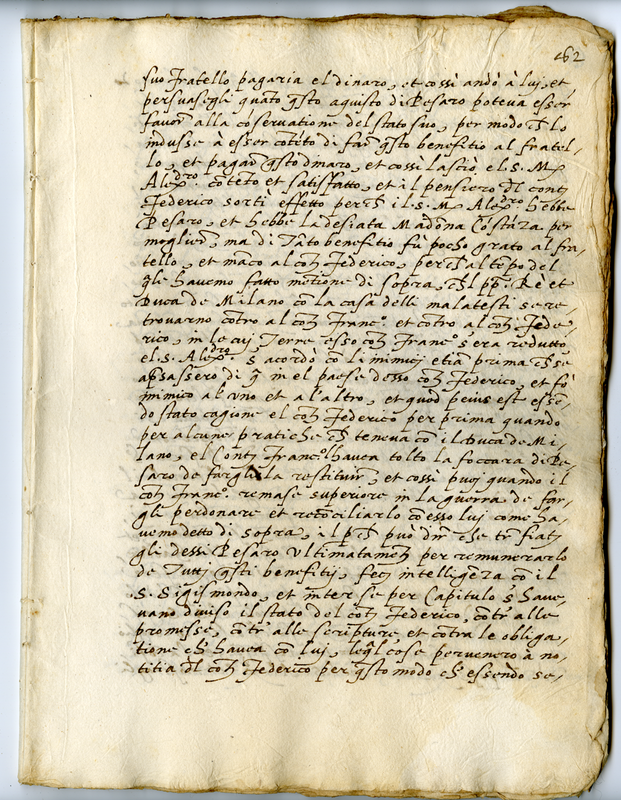 462
suo fratello pagaria el dinaro, et cossì andò à luj, et
persuasegli quãto q̃sto aquisto di Pesaro poteva esser
favor alla cõservatione del stato suo, per modo ch̃ lo
indusse à esser cõtẽto di far q̃sto benefitio al fratel-
lo, et pagar q̃sto dinaro, et cossì lasciò el s. Mr
Alexdro. cõtẽto et satisfatto, et il pensiero dl conte
Federico sortì effetto perch̃ il s. Mr Alexdro hebbe
Pesaro, et hebbe la desiata Madõna Costãza per
mogliera, ma di tãto benefitio fù pocho grato al fra-
tello, et mãco al cõte Federico, perch̃ al tẽpo del
q̃le havemo fatto mẽtione di sopra, ch̃l pp. Rè et
Duca de Milano cõ la casa delli malatesti se re-
trovarno cõtro al cõte Franco. et cõtro al cõte Fede-
rico, in le cuj Terre esso cõte Franco s'era redutto
el s. Alexdro. s'acordò cõ li inimicj etiã prima ch̃ se
apsassero di q̃ in el paese desso cõte Federico, et fò
inimico al uno et a l'altro, et quod peius est essẽ-
do stato cagione el cõte Federico per prima quando
per alcune pratiche ch̃ teneva cõ il Duca de Mi-
lano, el Conte Franco. havea tolto la foccara di Pe-
saro de fargliela restituir, et cossì puoj quando il
cõte Franco. remase superiore in la guerra de far-
gli perdonare et recõciliarlo cõ esso luj come ha-
vemo detto di sopra, il pch̃ può dir che tr̃ fiate
gli dessi Pesaro ultimatamẽte per remunerarlo
de tuttj q̃sti benefitij, fece intelligẽza cõ il
.s. Sigismondo, et inter se per Capitulo s'have-
vano diviso il stato del cõte Federico, cõtr alle
promesse, cõtr alle scripture, et contra le obliga-
tione ch̃ havea cõ luj, leq̃l cose pervenero à no-
titia dl cõte Federico per q̃sto modo ch̃ essendo se-